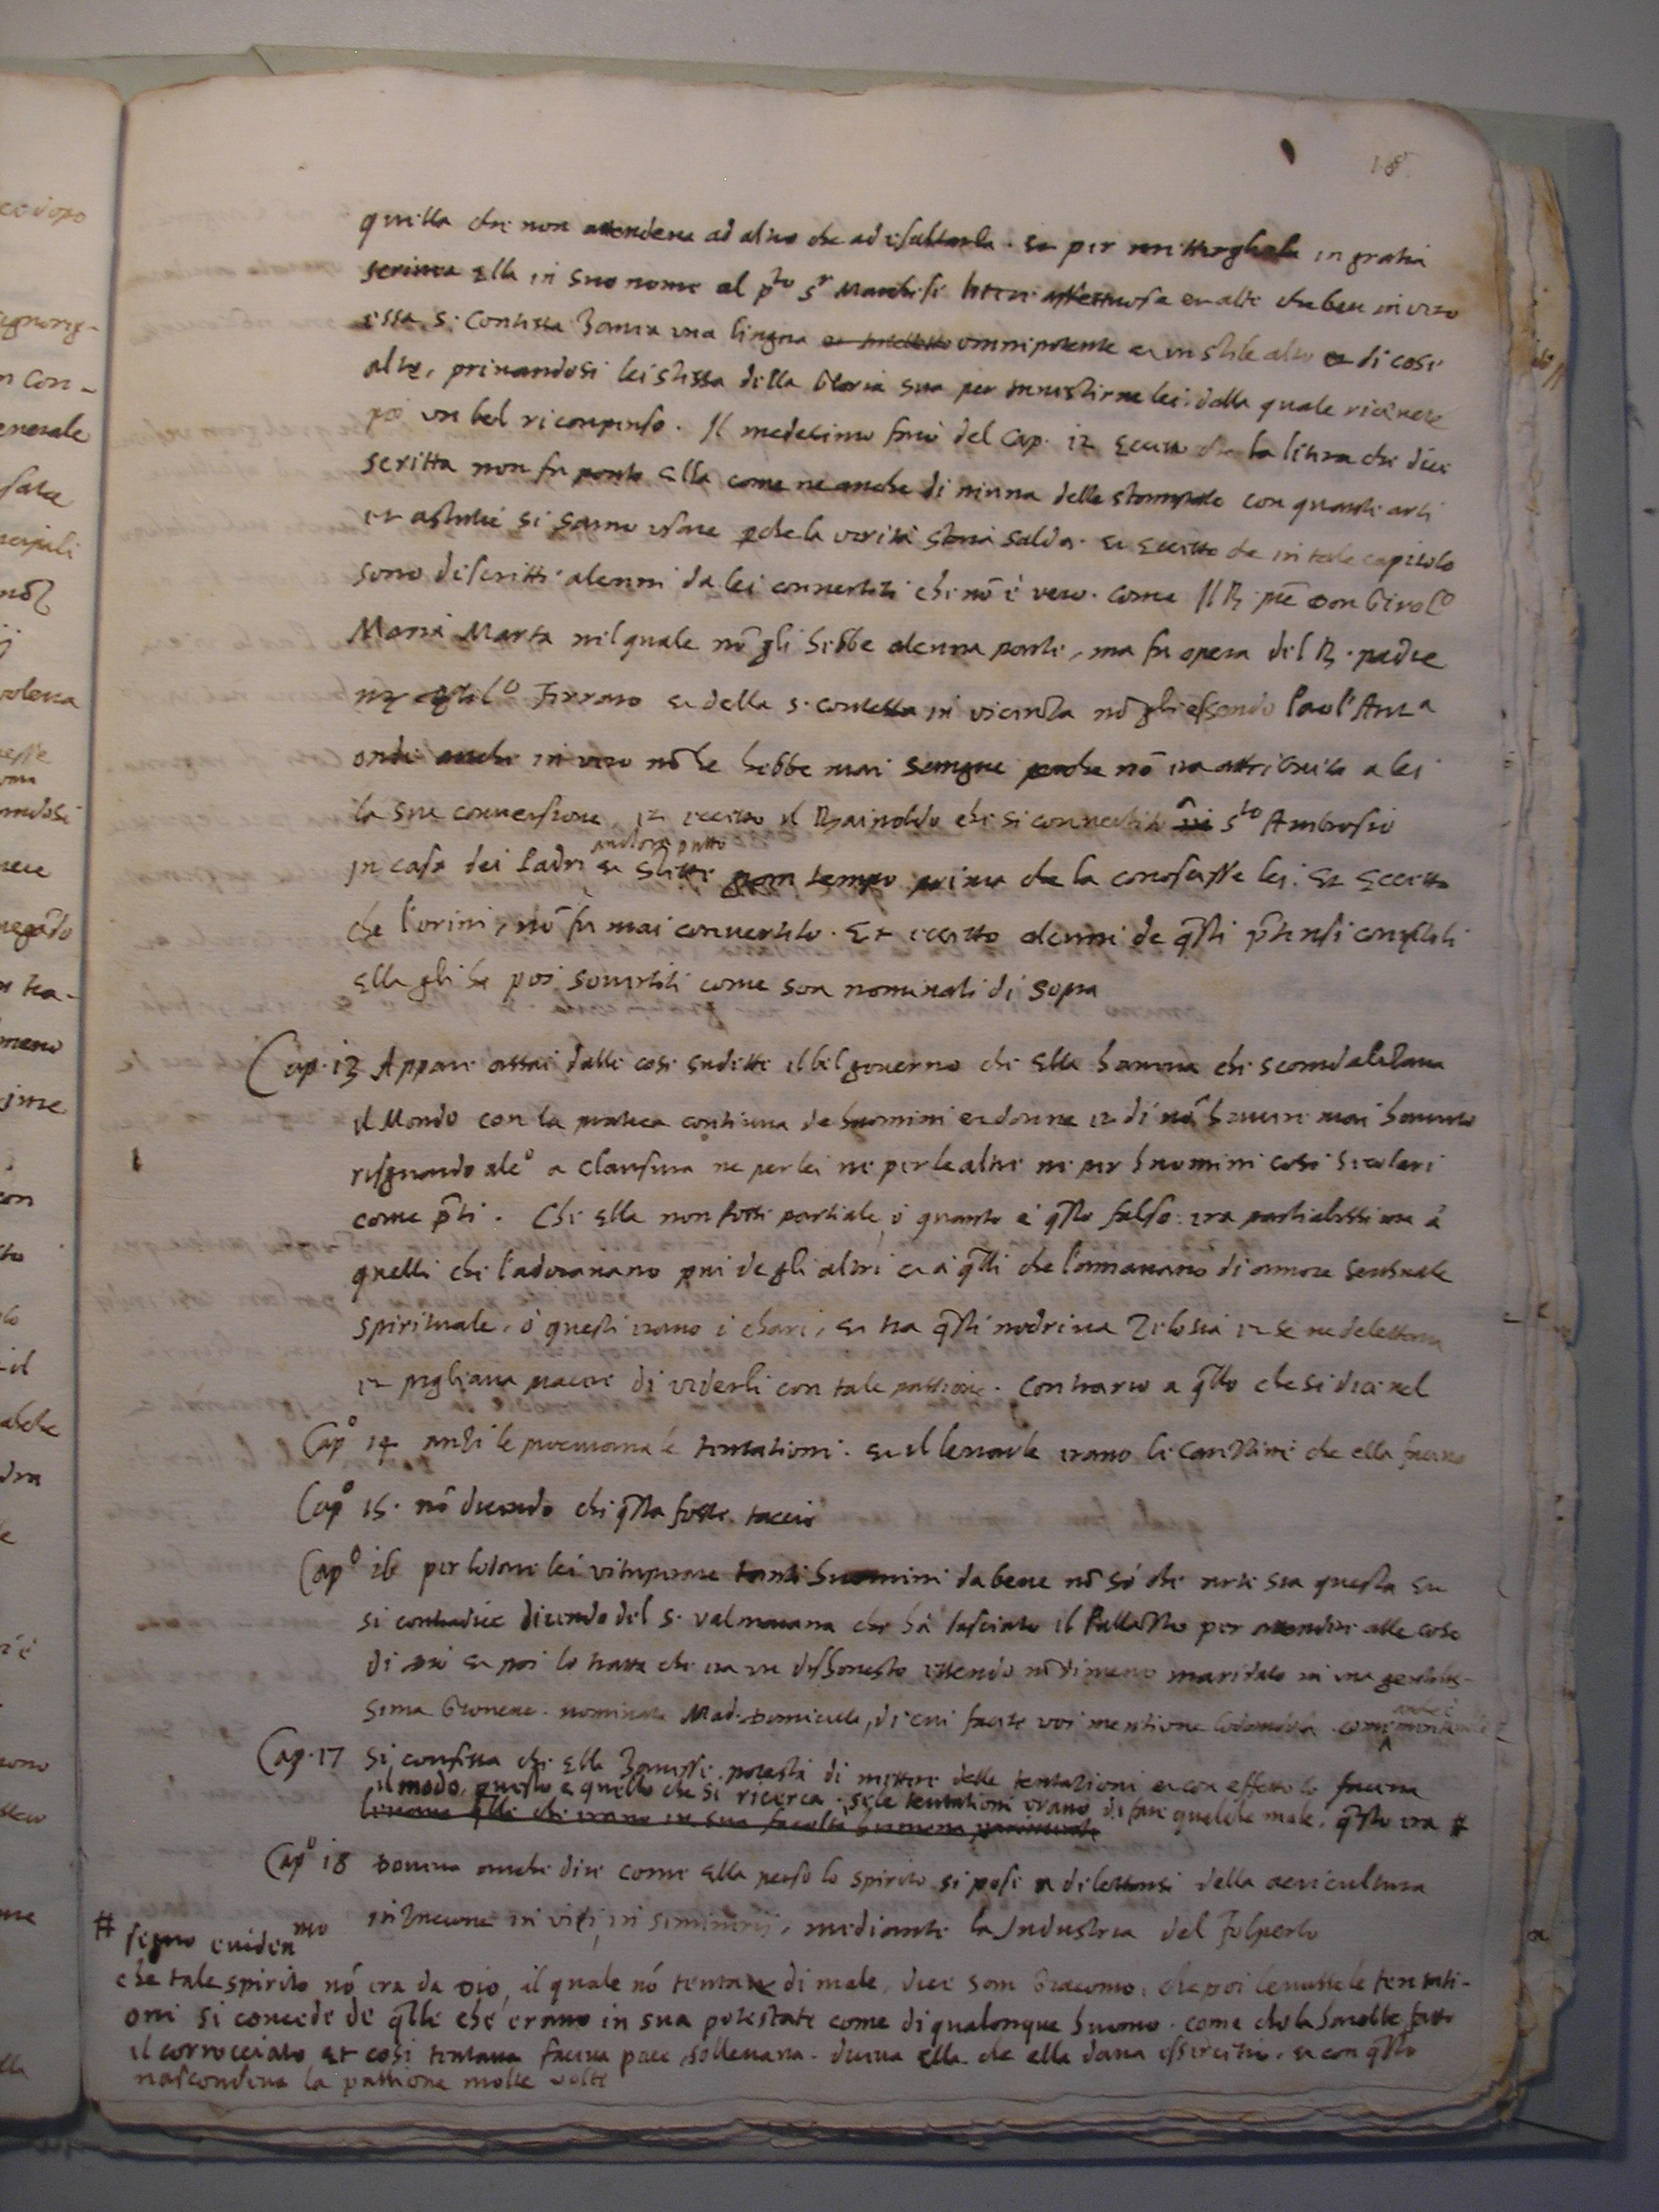 18
quella che non attendeva ad altro che ad esaltarla. et per metterghela in gratia
scrivea ella in suo nome al p.to s.r Marchese littere affettuose et alte che ben in vero
essa s. Contessa havea una lingua et intelletto omnipotente et un stile alto et di cose
alte, privandosi lei stessa della Gloria sua per investirne lei, dalla quale riceveva
poi un bel ricompenso. Il medesimo del Cap. 12 eccetto che la litera che dice
scritta non fu ponto ella come ne anche di niuna delle stampate con quante arti
et astutie si sanno usare pche la verità stava salda. et eccetto che in tale capitolo
sono descritti alcuni da lei convertiti che nō è vero. come Il R. pre Don Girol.o
Maria Marta nel quale nō gli hebbe alcuna parte, ma fu opera del R. padre
Ferraro et della s. contessa in vicenza nō gli essendo Paol'Ant.a
onde anche in vero nō le hebbe mai sempre perche nō era attribuita a lei
la sua conversione, et eccetto il Rainoldo che si convertite in s.to Ambrosio
in casa dei Padri et stette gran tempo prima che la conoscesse lei. et eccetto
che l'orini, nō fu mai convertito. Et eccetto alcuni de qsti ptensi convertiti
ella gli ha poi sovertiti come son nominati di sopra
Cap. 13 Appare assai dalle cose sudette il bel governo che ella haveva che scandalizava
il Mondo con la pratica continua de huomini et donne et di nō havere mai havuto
risguardo alc.o a clausura ne per lei ne per le altre ne per huomini cosi seculari
come pti. Che ella non fosse partiale, ò quanto è qsto falso. era partialissima à
quelli che l'adoravano piu degli altri et à qlli che l'amavano di amore sensuale
spirituale, ò questi erano i chari, et tra qsti nodriva Zelosia et se ne delettava
et pigliava piacere di vederli con tale passione. contrario a qllo che si dice nel
Cap.o 14 anzi le procurava le tentationi. et il levarle erano le carezzine che ella faceva
Cap.o 15. nō dicendo chi qsta fosse. taccio
Cap.o 16 per lodare lei vituperare tanti huomini da bene nō sò che arte sia questa et
si contradice dicendo del s. valmarana che hà lasciato il Pallazzo per attendere alle cose
di Dio et poi lo tratta che era un dishonesto essendo nōdimeno maritato in una gentilis-
sima Giovene. nominata Mad. Domicilla, di cui facete voi mentione lodandola come
Cap. 17 Si confessa che ella havesse potestà di mettere delle tentationi et con effetto lo faceva
il modo, questo e quello che si ricerca. se le tentationi erano di fare qualche male, qsto era #
levava qlle che erano in sua facoltà humana
Cap.o 18 Doveva anche dire come ella perso lo spirito si pose a dilettarsi della agricultura
in vite, in seminarij, mediante la Industria del Folperto
# segno eviden.mo
che tale spirito nō era da Dio, il quale nō tenta di male, dice san Giacomo, che poi levasse le tentati-
oni si concede de qlle che erano in sua potestate come di qualonque huomo. come che la havesse fatto
il corrocciato, et cosi tentava faceva pace, sollevava. diceva ella che ella dava essercitio. et con qsto
nascondeva la passione molte volte